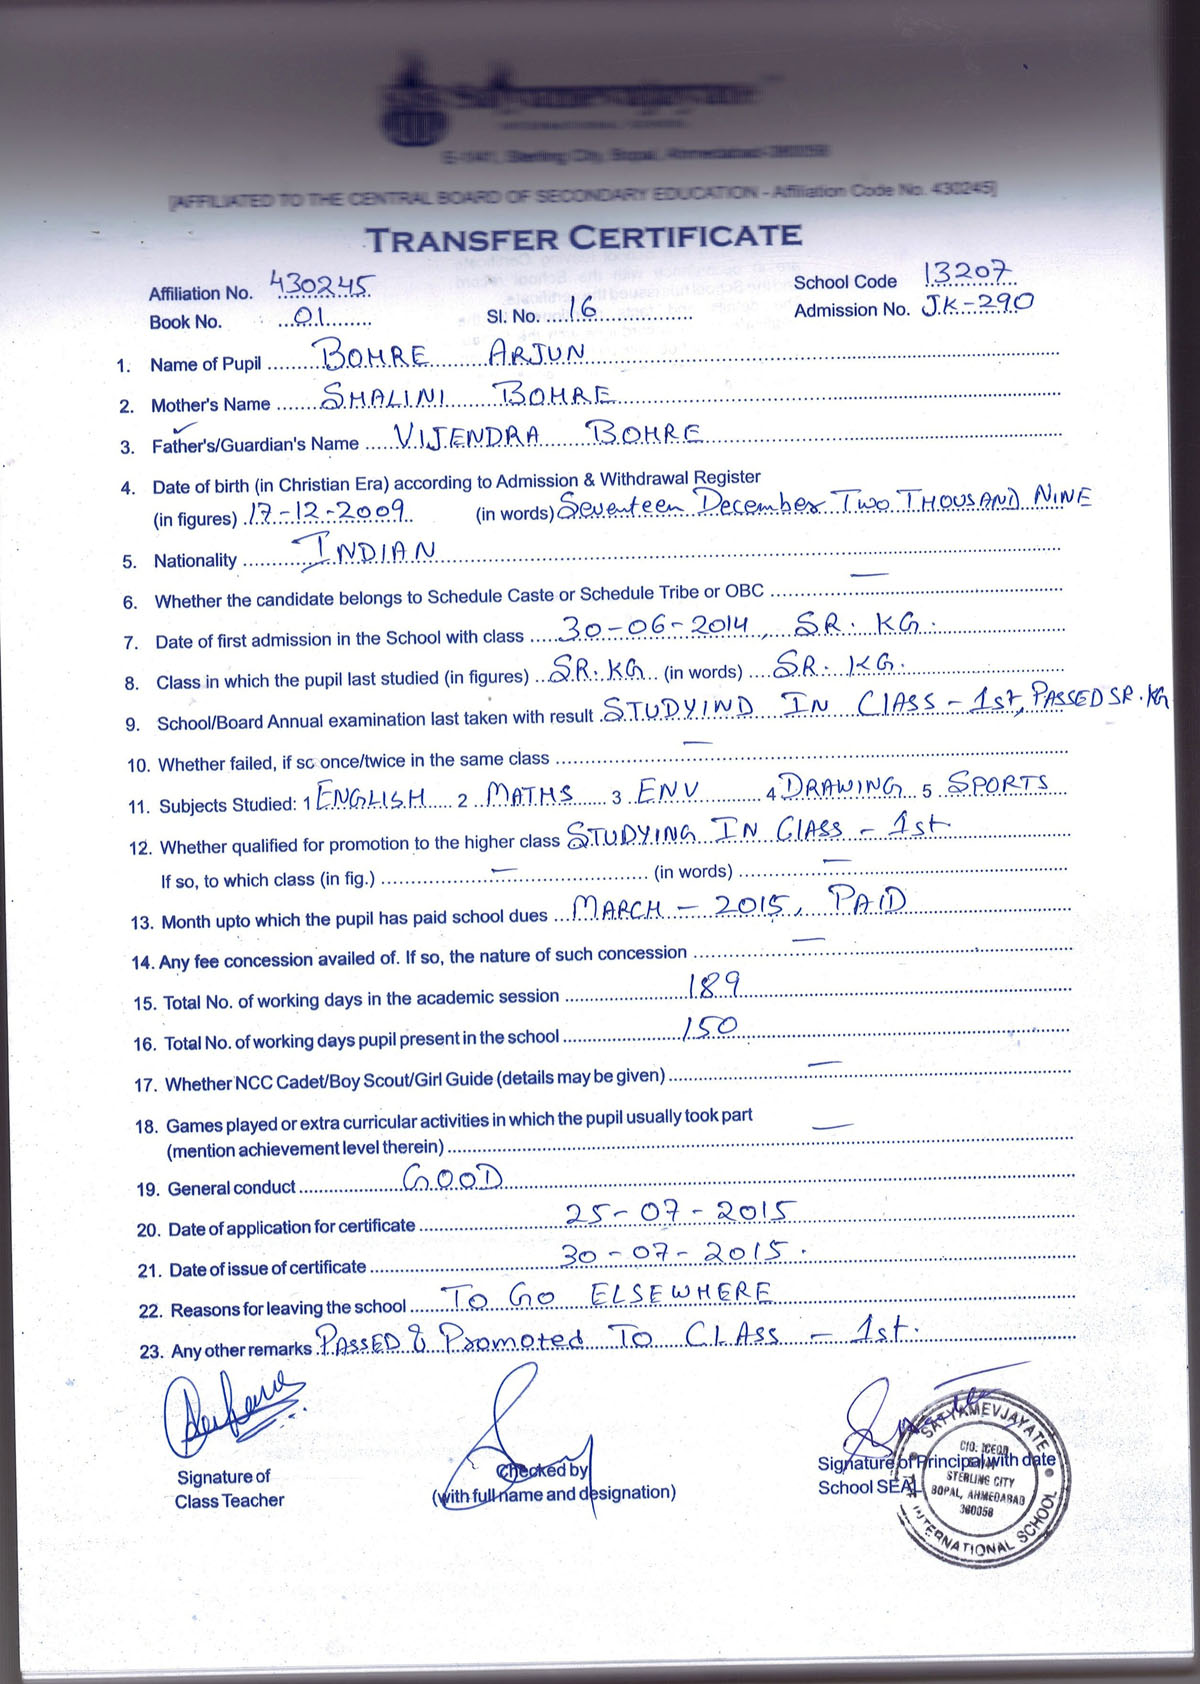 Satyamevjayate
INTERNATIONAL SCHOOL
E-141, Sterling City, Bopal, Ahmedabad-380058
[AFFILIATED TO THE CENTRAL BOARD OF SECONDARY EDUCATION - Affiliation Code No. 430245]
TRANSFER CERTIFICATE
Affiliation No. 430245 School Code 13207
Book No. 01 Sl. No. 16 Admission No. JK-290
1. Name of Pupil BOHRE ARJUN
2. Mother's Name SHALINI BOHRE
3. Father's/Guardian's Name VIJENDRA BOHRE
4. Date of birth (in Christian Era) according to Admission & Withdrawal Register
(in figures) 17-12-2009 (in words) Seventeen December Two THOUSAND NINE
5. Nationality INDIAN
6. Whether the candidate belongs to Schedule Caste or Schedule Tribe or OBC —
7. Date of first admission in the School with class 30-06-2014, SR. KG.
8. Class in which the pupil last studied (in figures) SR. KG (in words) SR. KG.
9. School/Board Annual examination last taken with result STUDYIND IN ClASS - 1st, PASSED SR. KG
10. Whether failed, if so once/twice in the same class —
11. Subjects Studied: 1 ENGLISH 2 MATHS 3 ENV 4 DRAWING 5 SPORTS
12. Whether qualified for promotion to the higher class STUDYING IN ClASS - 1st
If so, to which class (in fig.) — (in words) —
13. Month upto which the pupil has paid school dues MARCH - 2015, PAID
14. Any fee concession availed of. If so, the nature of such concession —
15. Total No. of working days in the academic session 189
16. Total No. of working days pupil present in the school 150
17. Whether NCC Cadet/Boy Scout/Girl Guide (details may be given) —
18. Games played or extra curricular activities in which the pupil usually took part
(mention achievement level therein) —
19. General conduct GOOD
20. Date of application for certificate 25-07-2015
21. Date of issue of certificate 30-07-2015.
22. Reasons for leaving the school To Go ELSEWHERE
23. Any other remarks PASSED & Promoted To CLASS - 1st.
Signature of
Class Teacher
Checked by
(with full name and designation)
Signature of Principal with date
School SEAL
SATYAMEVJAYATE
INTERNATIONAL SCHOOL
C/O. ICEOR
STERLING CITY
BOPAL, AHMEDABAD
380058